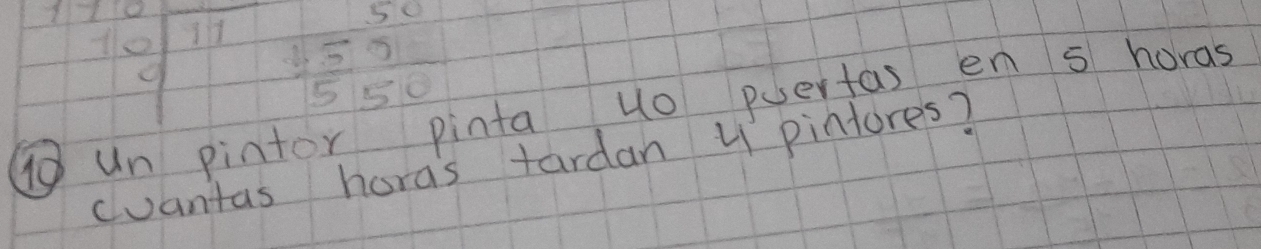 50
10 11
550
10 un pintor pinta 40 puertas en 5 horas
cuantas horas tardan 4 pintores?